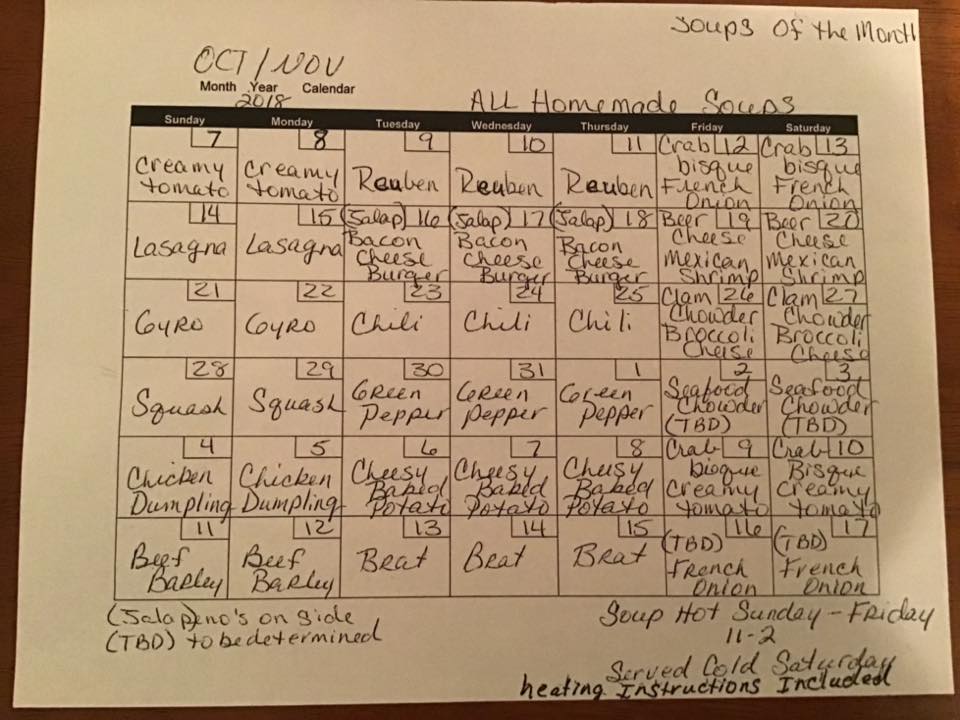 Soups Of the Month
OCT/NOV
Month Year Calendar
2018
ALL Homemade Soups
Sunday Monday Tuesday Wednesday Thursday Friday Saturday
7 8 9 10 11 Crab 12 Crab 13
Creamy Creamy Reuben Reuben Reuben bisque bisque
tomato tomato French French
Onion Onion
14 15 (Jalap) 16 (Jalap) 17 (Jalap) 18 Beer 19 Beer 20
Lasagna Lasagna Bacon Bacon Bacon Cheese Cheese
Cheese Cheese Cheese Mexican Mexican
Burger Burger Burger Shrimp Shrimp
21 22 23 24 25 Clam 26 Clam 27
Gyro Gyro Chili Chili Chili Chowder Chowder
Broccoli Broccoli
Cheese Cheese
28 29 30 31 1 2 3
Squash Squash Green Green Green Seafood Seafood
Pepper Pepper Pepper Chowder Chowder
(TBD) (TBD)
4 5 6 7 8 Crab 9 Crab 10
Chicken Chicken Cheesy Cheesy Cheesy bisque Bisque
Dumpling Dumpling Baked Baked Baked Creamy Creamy
Potato Potato Potato tomato tomato
11 12 13 14 15 16 17
Beef Beef Brat Brat Brat (TBD) (TBD)
Barley Barley French French
Onion Onion
(Jalapeno's on side
(TBD) to be determined
Soup Hot Sunday - Friday
11-2
Served Cold Saturday
heating Instructions Included